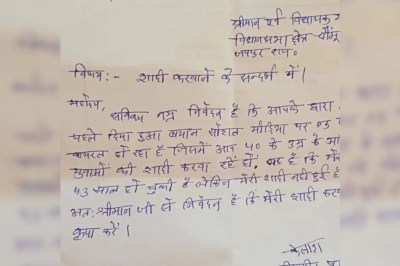 श्रीमान पूर्व विधायक
विधानसभा क्षेत्र चौमूं
जयपुर राज.
विषय:- शादी करवाने के सन्दर्भ में।
महोदय,
सविनय नम्र निवेदन है कि आपके द्वारा
पहले दिया हुआ बयान सोशल मीडिया पर
वायरल हो रहा है जिसमें आप 40 के उम्र के
युवाओं की शादी करवा रहें हो. है कि मेरी
43 साल हो चुकी है लेकिन मेरी शादी नहीं हुई है
अत: श्रीमान जी से निवेदन है कि मेरी शादी
कृपा करें।
कैलाश